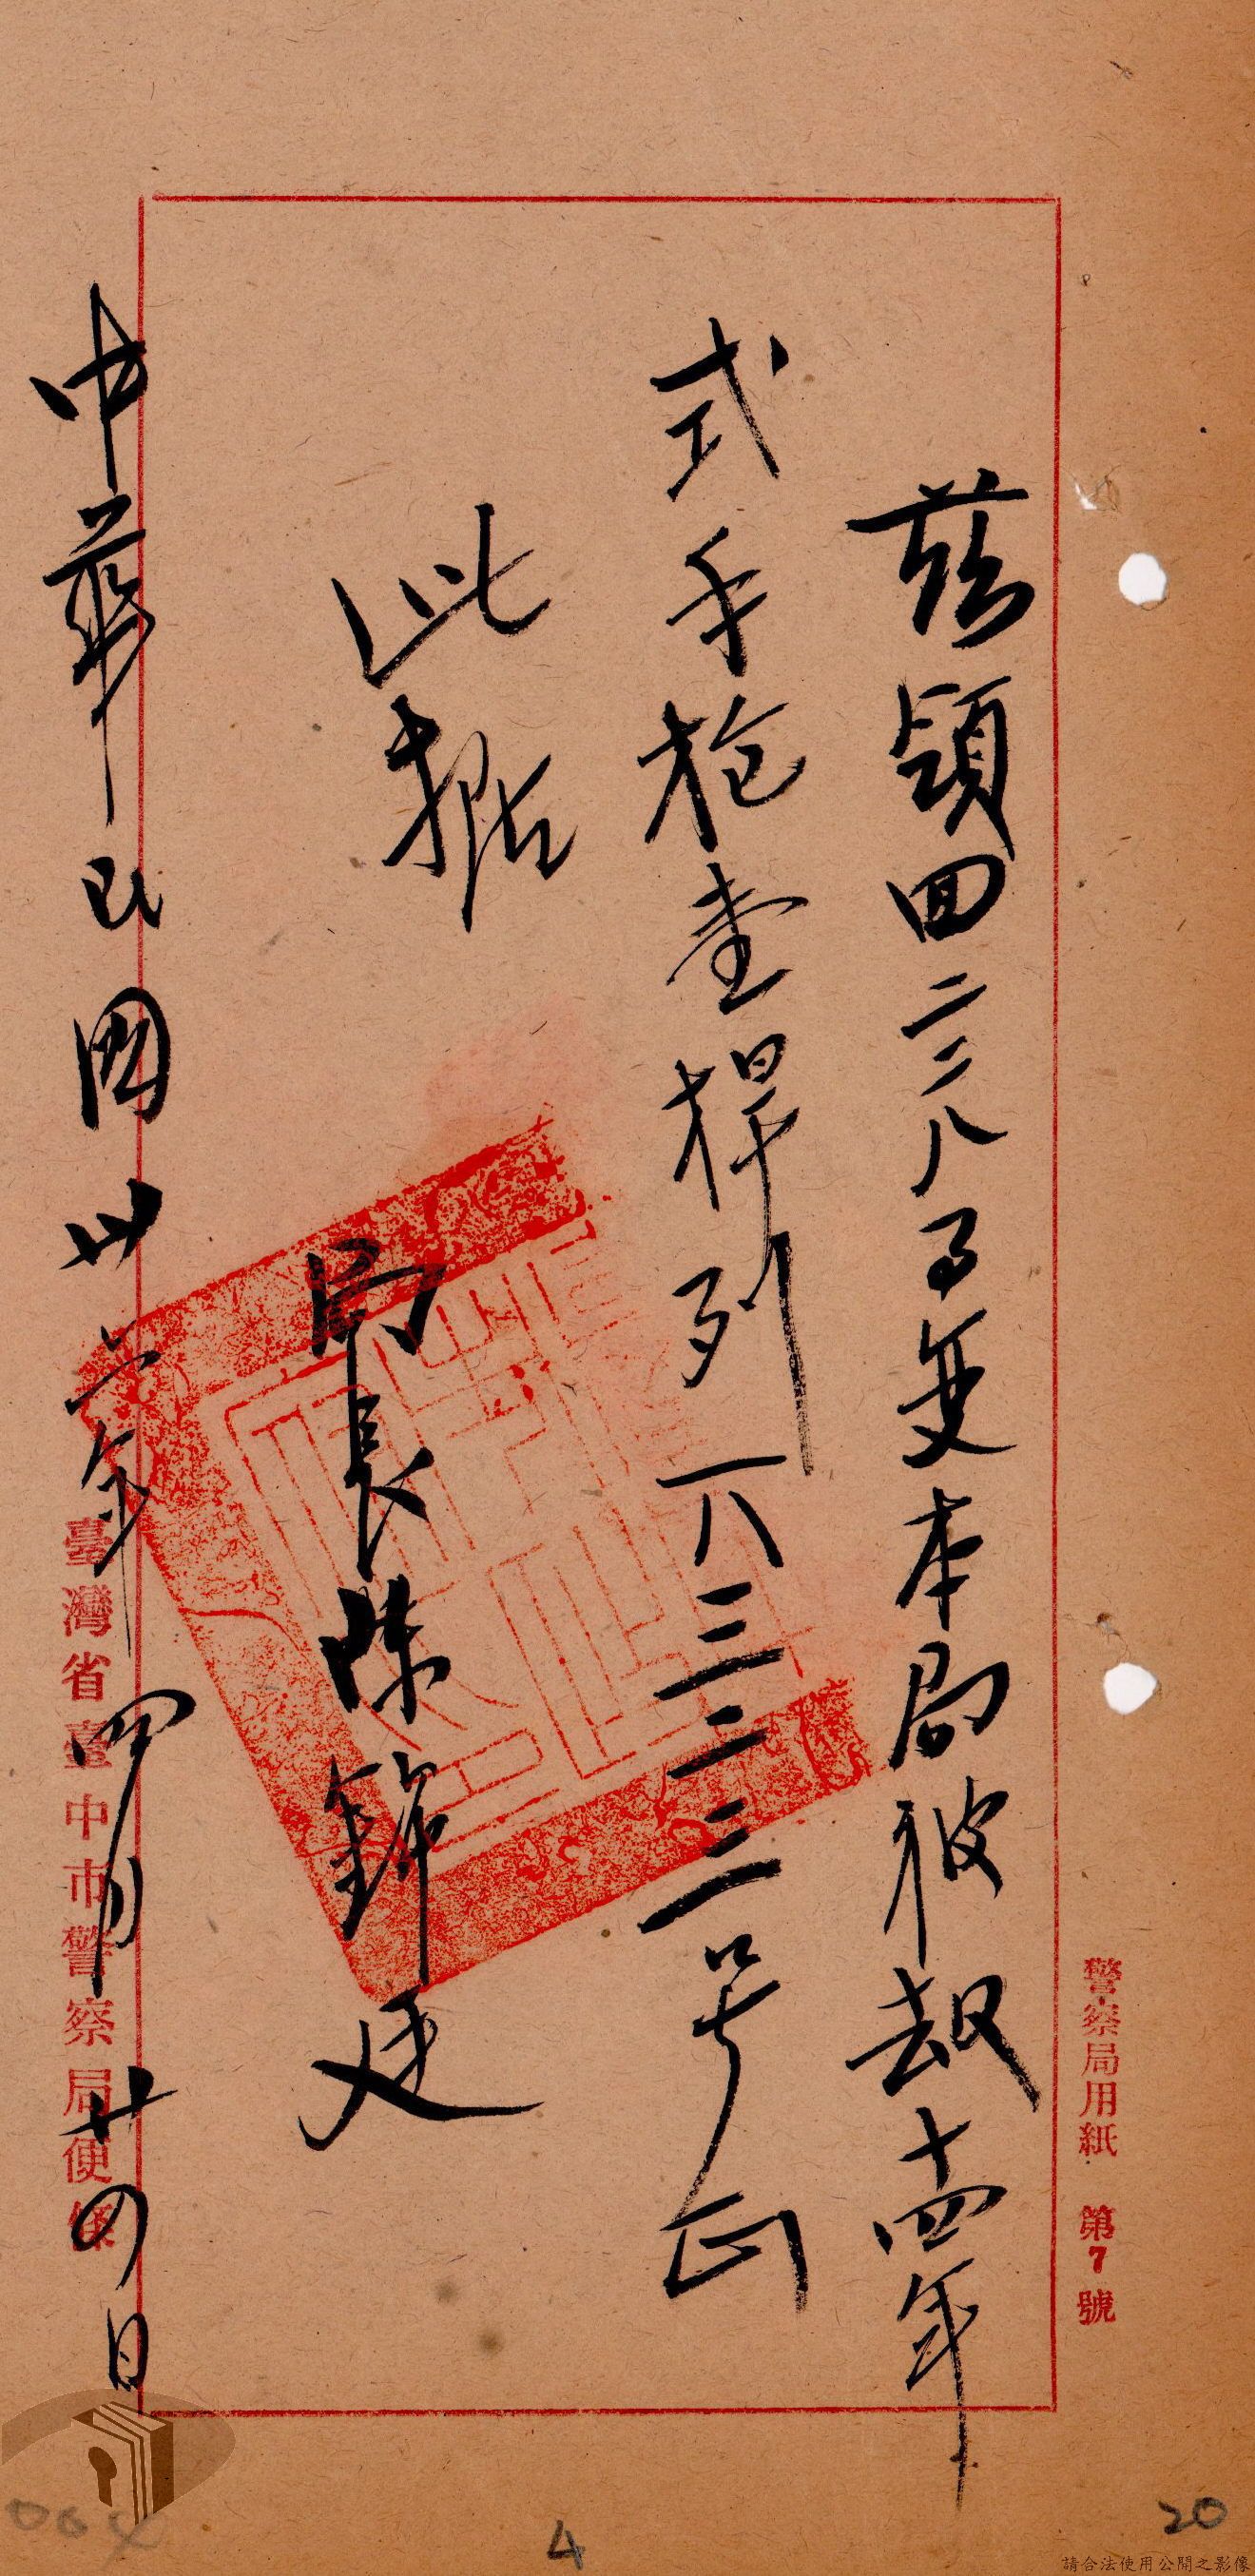 警察局用紙 第7號
茲領回二二八事變本局被劫十四年
式手槍壹桿列一八三三二三三號正
此據
局長陳錦廷
中華民國卅六年四月廿四日
臺灣省臺中市警察局便條
20
4
請合法使用公開之影像